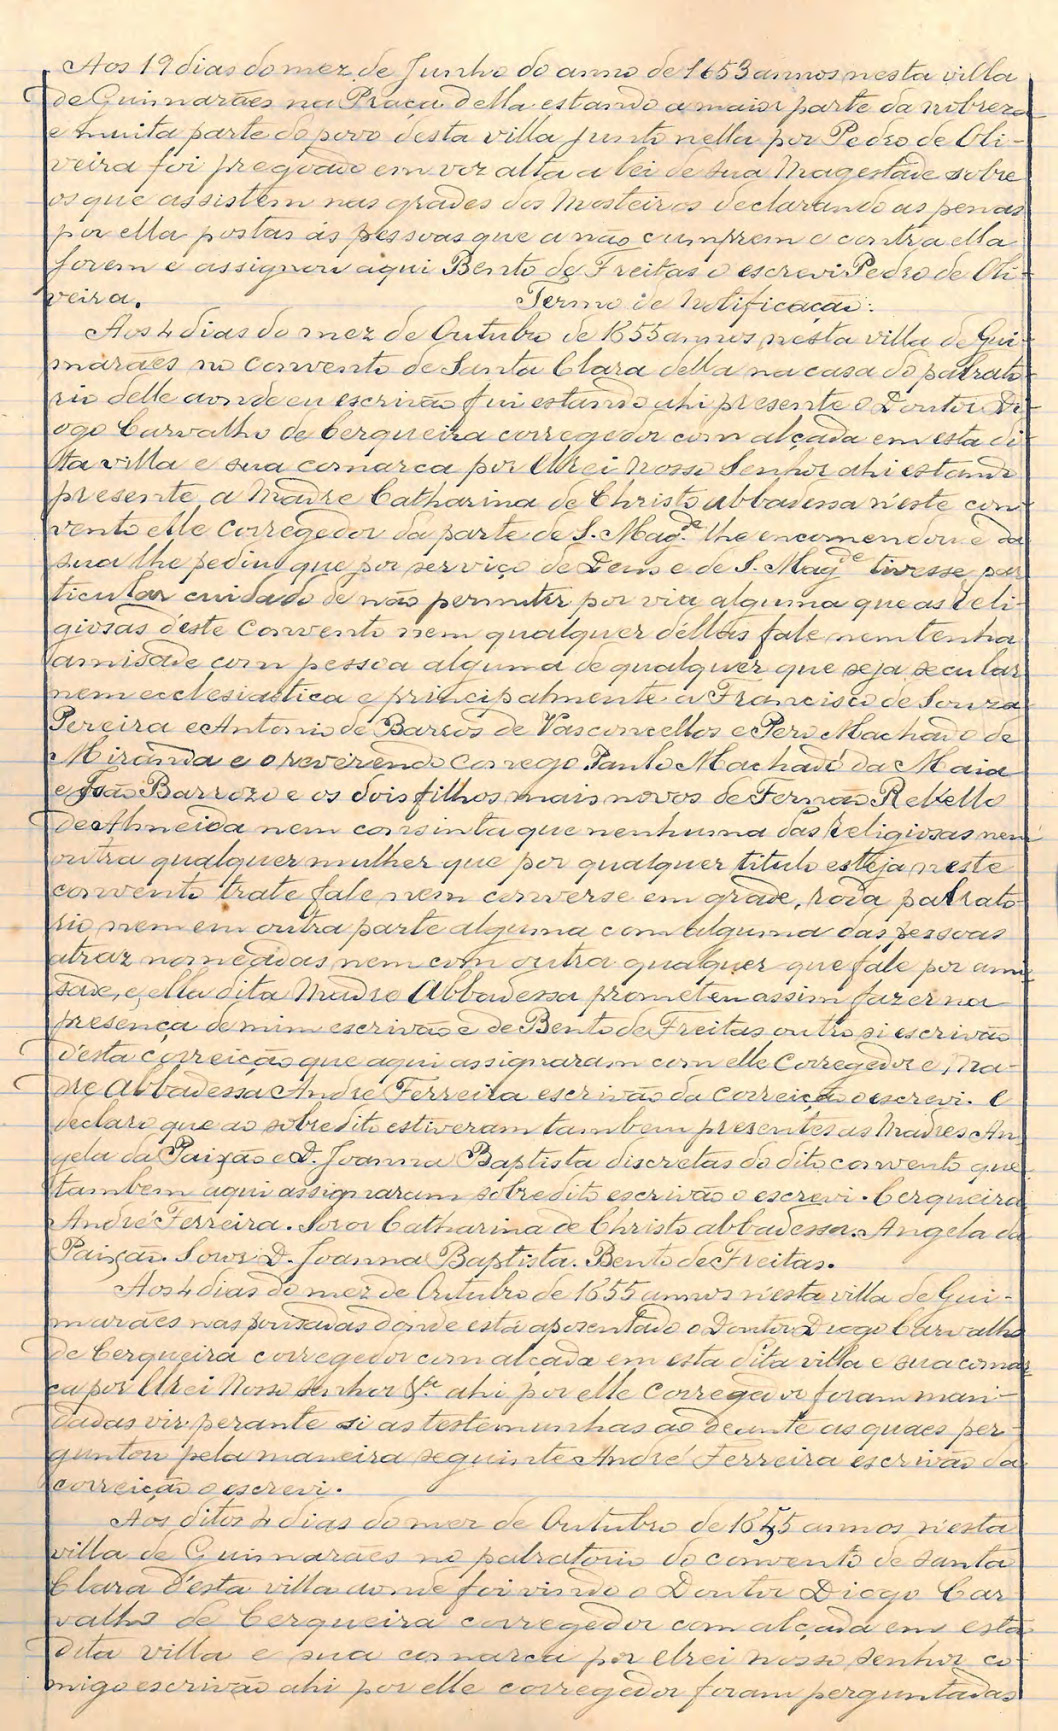 Aos 19 dias do mez de Junho do anno de 1653 annos nesta villa
de Guimarães na Praça della estando a maior parte da nobreza
e muita parte do povo d'esta villa junto nella por Pedro de Oli-
veira foi pregoado em voz alta a lei de sua Magestade sobre
os que assistem nas grades dos Mosteiros declarando as penas
por ella postas ás pessoas que a não cumprem e contra ella
forem e assignou aqui Bento de Freitas o escrevi Pedro de Oli-
veira. Termo de Notificação:
Aos 4 dias do mez de Outubro de 1655 annos nesta villa de Gui-
marães no convento de Santa Clara della na casa do palrato-
rio delle aonde eu escrivão fui estando ahi presente o Doutor Di-
ogo Carvalho de Cerqueira corregedor com alçada em esta di-
ta villa e sua comarca por Elrei Nosso Senhor ahi estando
presente a Madre Catharina de Christo abbadessa n'este con-
vento elle corregedor da parte de S. Mag.de lhe encomendou e da
sua lhe pediu que por serviço de Deus e de S. Mag.de tivesse par-
ticular cuidado de não permitir por via alguma que as reli-
giosas d'este convento nem qualquer dellas fale nem tenha
amisade com pessoa alguma de qualquer que seja secular
nem ecclesiastica e principalmente a Francisco de Souza
Pereira e Antonio de Barros de Vasconcellos e Pero Machado de
Miranda e o reverendo conego Paulo Machado da Maia
e João Barrozo e os dois filhos mais novos de Fernão Rebello
de Almeida nem consinta que nenhuma das religiosas nem
outra qualquer mulher que por qualquer titulo esteja neste
convento trate fale nem converse em grade, roda palrato-
rio nem em outra parte alguma com alguma das pessoas
atraz nomeadas nem com outra qualquer que fale por ami-
sade, e ella dita Madre Abbadessa prometeu assim fazer na
presença de mim escrivão e de Bento de Freitas outro si escrivão
d'esta correição que aqui assignaram com elle corregedor e Ma-
dre Abbadessa André Ferreira escrivão da correição o escrevi. E
declaro que ao sobredito estiveram tambem presentes as Madres An-
gela da Paixão e D. Joanna Baptista discretas do dito convento que
tambem aqui assignaram sobredito escrivão o escrevi. Cerqueira
André Ferreira. Soror Catharina de Christo abbadessa. Angela da
Paixão. Soror D. Joanna Baptista. Bento de Freitas.
Aos 4 dias do mez de Outubro de 1655 annos n'esta villa de Gui-
marães nas pousadas donde está aposentado o Doutor Diogo Carvalho
de Cerqueira corregedor com alçada em esta dita villa e sua comar-
ca por Elrei Nosso Senhor ahi por elle corregedor foram man-
dadas vir perante si as testemunhas ao deante as quaes per-
guntou pela maneira seguinte André Ferreira escrivão da
correição o escrevi.
Aos ditos 4 dias do mez de Outubro de 1655 annos n'esta
villa de Guimarães no palratorio do convento de Santa
Clara d'esta villa aonde foi vindo o Doutor Diogo Car-
valho de Cerqueira corregedor com alçada em esta
dita villa e sua comarca por elrei nosso senhor co-
migo escrivão ahi por elle corregedor foram perguntadas